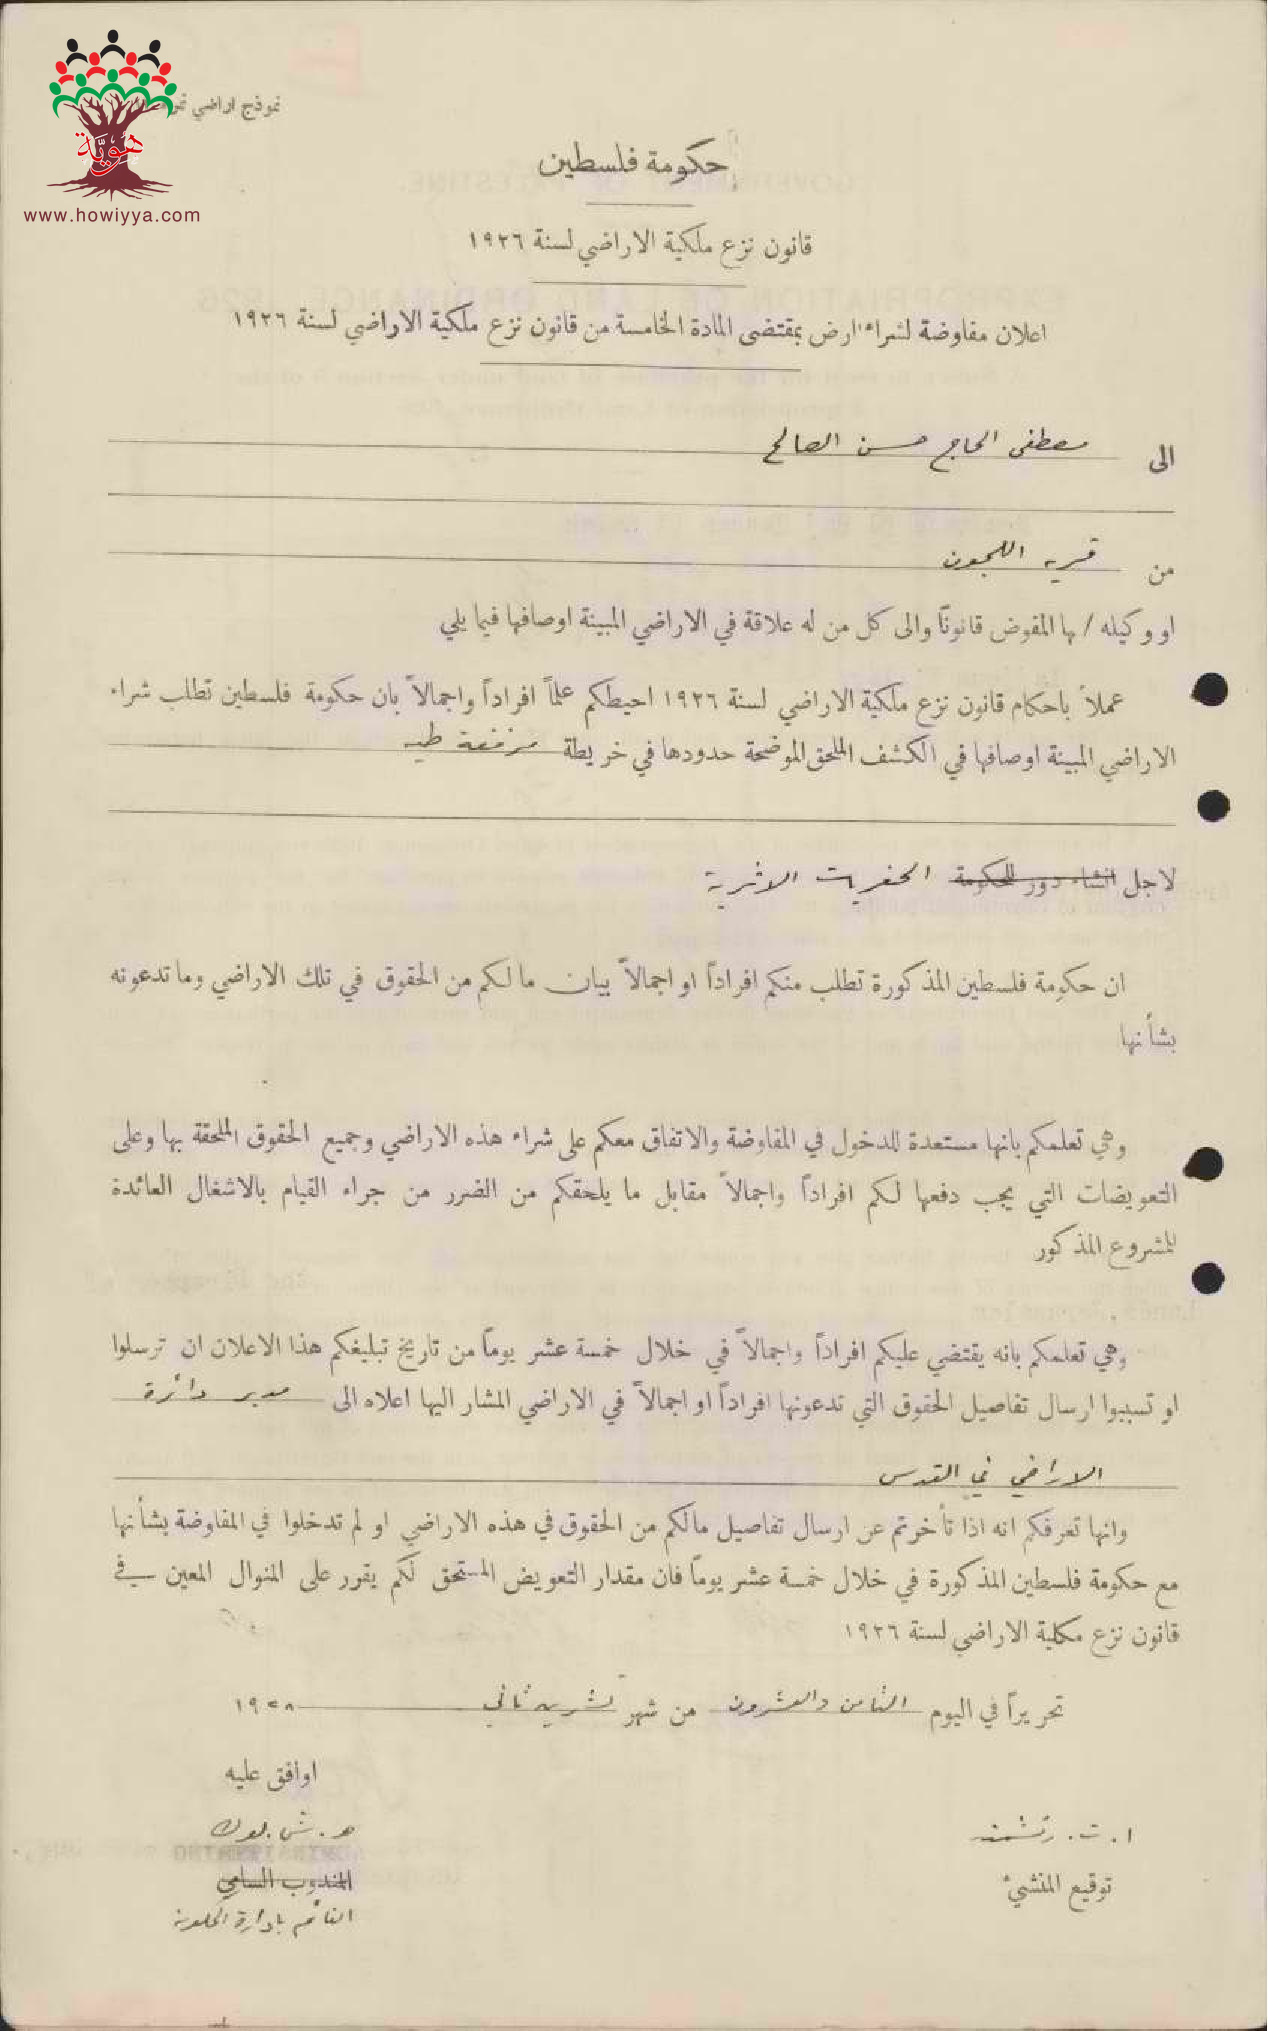 هوية
www.howiyya.com
نموذج اراضي
حكومة فلسطين
قانون نزع ملكية الاراضي لسنة ١٩٢٦
اعلان مفاوضة لشراء ارض بمقتضى المادة الخامسة من قانون نزع ملكية الاراضي لسنة ١٩٢٦
الى مصطفى الحاج حسن الصالح
من قريه اللجون
او وكيله / ها المفوض قانونًا والى كل من له علاقة في الاراضي المبينة اوصافها فيما يلي
عملاً باحكام قانون نزع ملكية الاراضي لسنة ١٩٢٦ احيطكم علماً افراداً واجمالاً بان حكومة فلسطين تطلب شراء
الاراضي المبينة اوصافها في الكشف الملحق الموضحة حدودها في خريطة مرفقة طيه
لاجل انشاء دور للحكومة الحفريات الاثرية
ان حكومة فلسطين المذكورة تطلب منكم افراداً او اجمالاً بيان ما لكم من الحقوق في تلك الاراضي وما تدعونه
بشأنها
وهي تعلمكم بانها مستعدة للدخول في المفاوضة والاتفاق معكم على شراء هذه الاراضي وجميع الحقوق الملحقة بها وعلى
التعويضات التي يجب دفعها لكم افراداً واجمالاً مقابل ما يلحقكم من الضرر من جراء القيام بالاشغال العائدة
للمشروع المذكور
وهي تعلمكم بانه يقتضي عليكم افراداً واجمالاً في خلال خمسة عشر يوماً من تاريخ تبليغكم هذا الاعلان ان ترسلوا
او تسببوا ارسال تفاصيل الحقوق التي تدعونها افراداً او اجمالاً في الاراضي المشار اليها اعلاه الى مدير دائرة
الاراضي في القدس
وانها تعرفكم انه اذا تأخرتم عن ارسال تفاصيل مالكم من الحقوق في هذه الاراضي او لم تدخلوا في المفاوضة بشأنها
مع حكومة فلسطين المذكورة في خلال خمسة عشر يوماً فان مقدار التعويض المستحق لكم يقرر على المنوال المعين في
قانون نزع مكلية الاراضي لسنة ١٩٢٦
تحريراً في اليوم الثامن والعشرون من شهر تشرين ثاني ١٩٢٨
اوافق عليه
ا. ت. رتشمند
ه. ش. لوك
توقيع المنشيء
المندوب السامي
القائم بادارة الحكومة